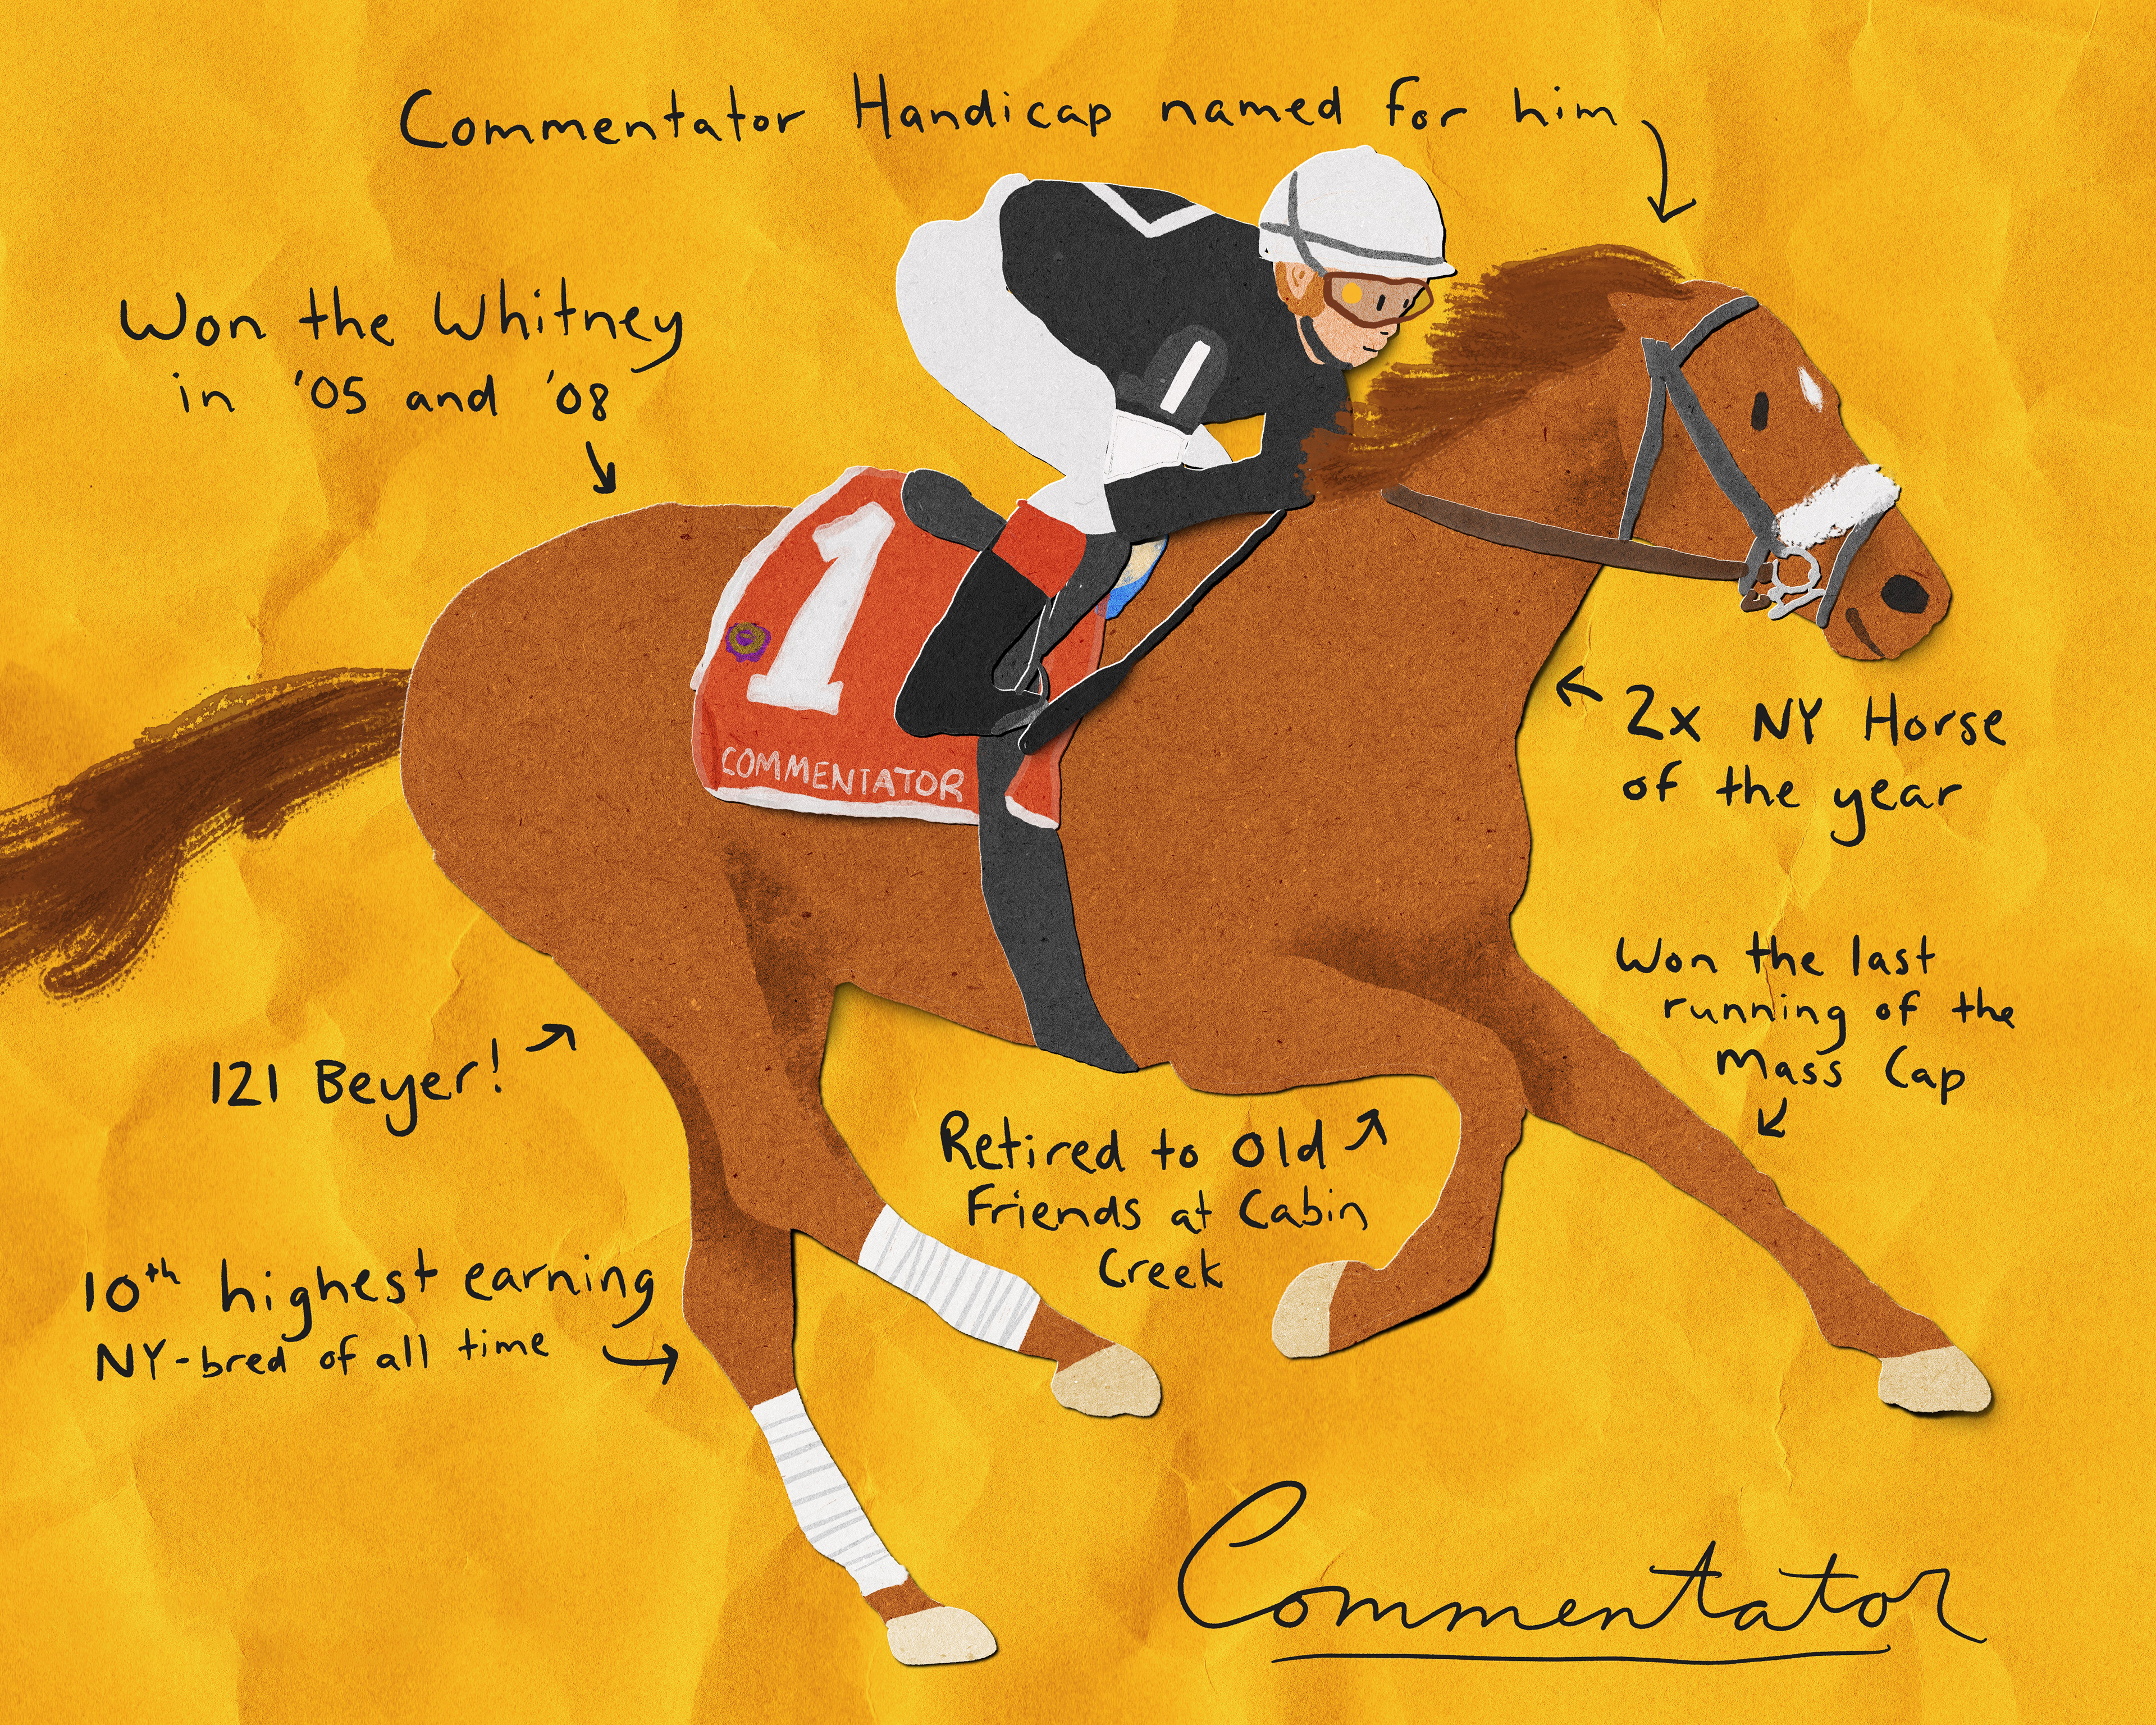 Commentator Handicap named for him
Won the Whitney
in '05 and '08
1
COMMENTATOR
2x NY Horse
of the year
Won the last
running of the
Mass Cap
121 Beyer!
Retired to Old
Friends at Cabin
Creek
10th highest earning
NY-bred of all time
Commentator